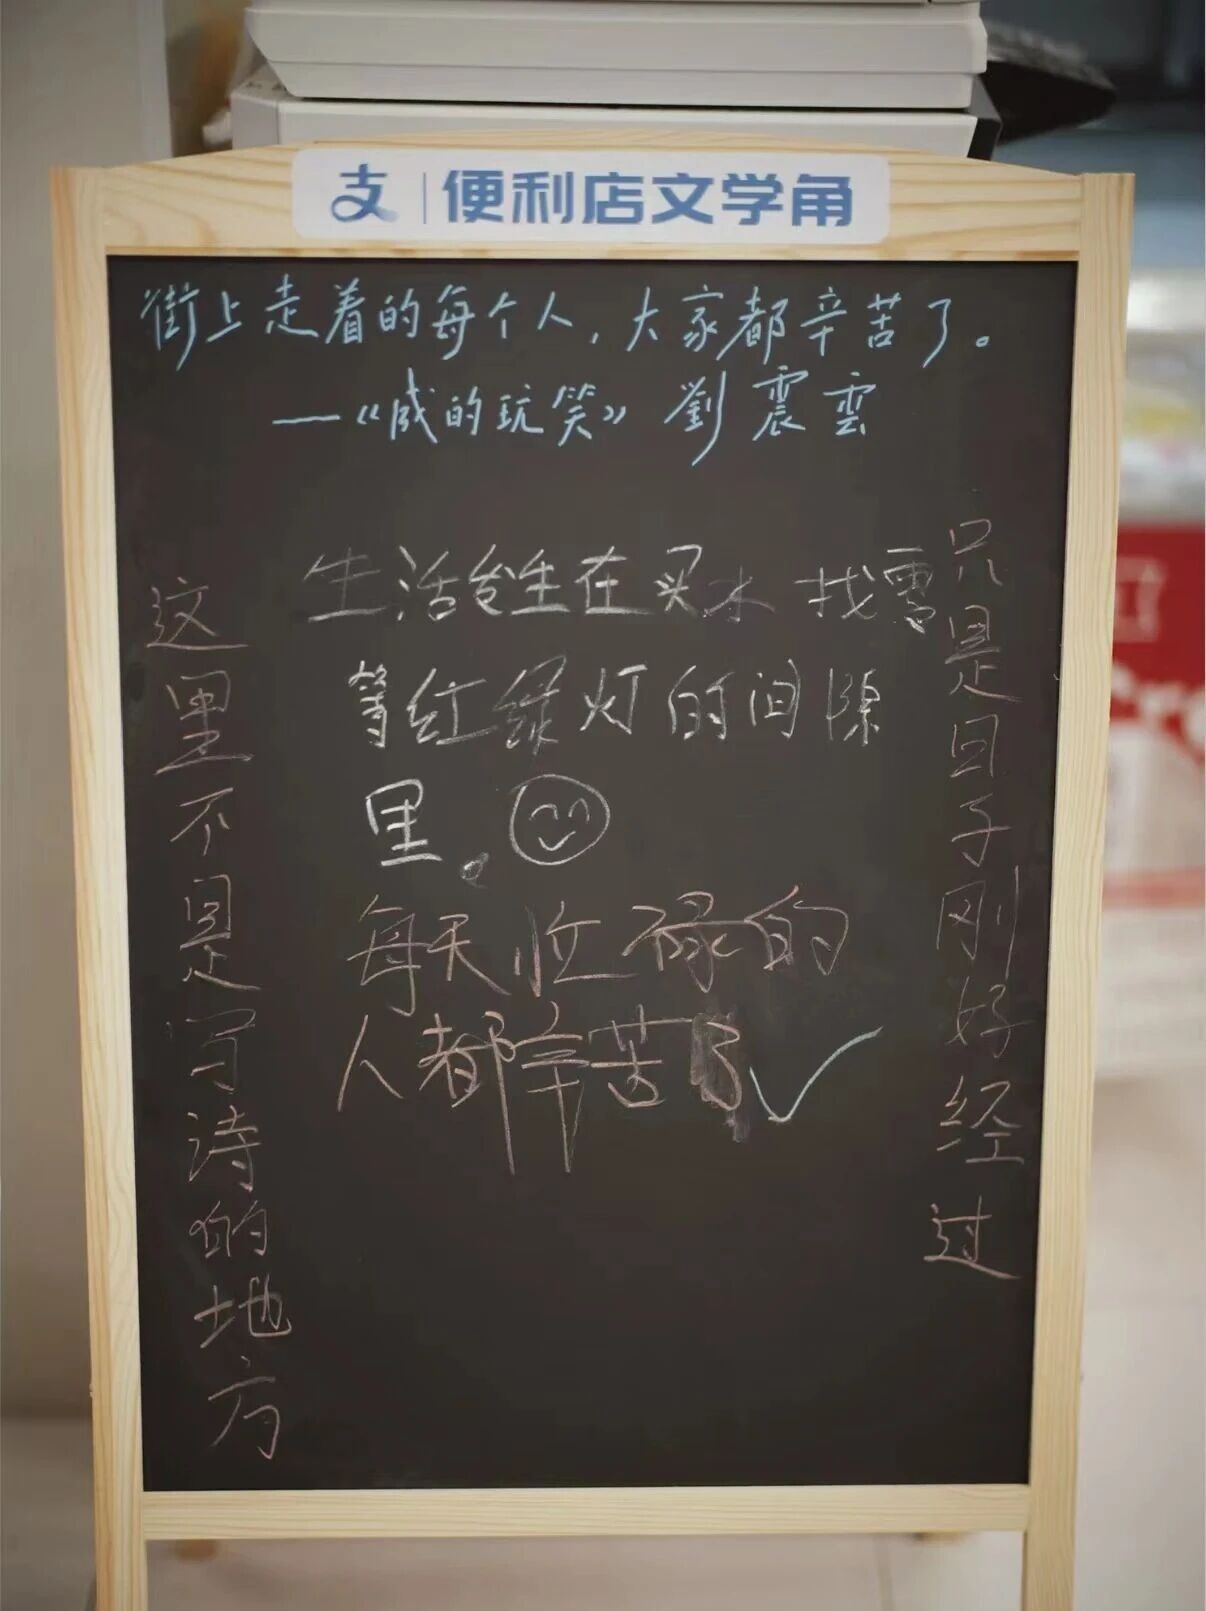 支|便利店文学角
街上走着的每个人，大家都辛苦了。
——《咸的玩笑》劉震雲
生活发生在买水 找零
等红绿灯的间隙
里。
每天忙碌的
人都辛苦了
这里不是写诗的地方
只是日子刚好经过